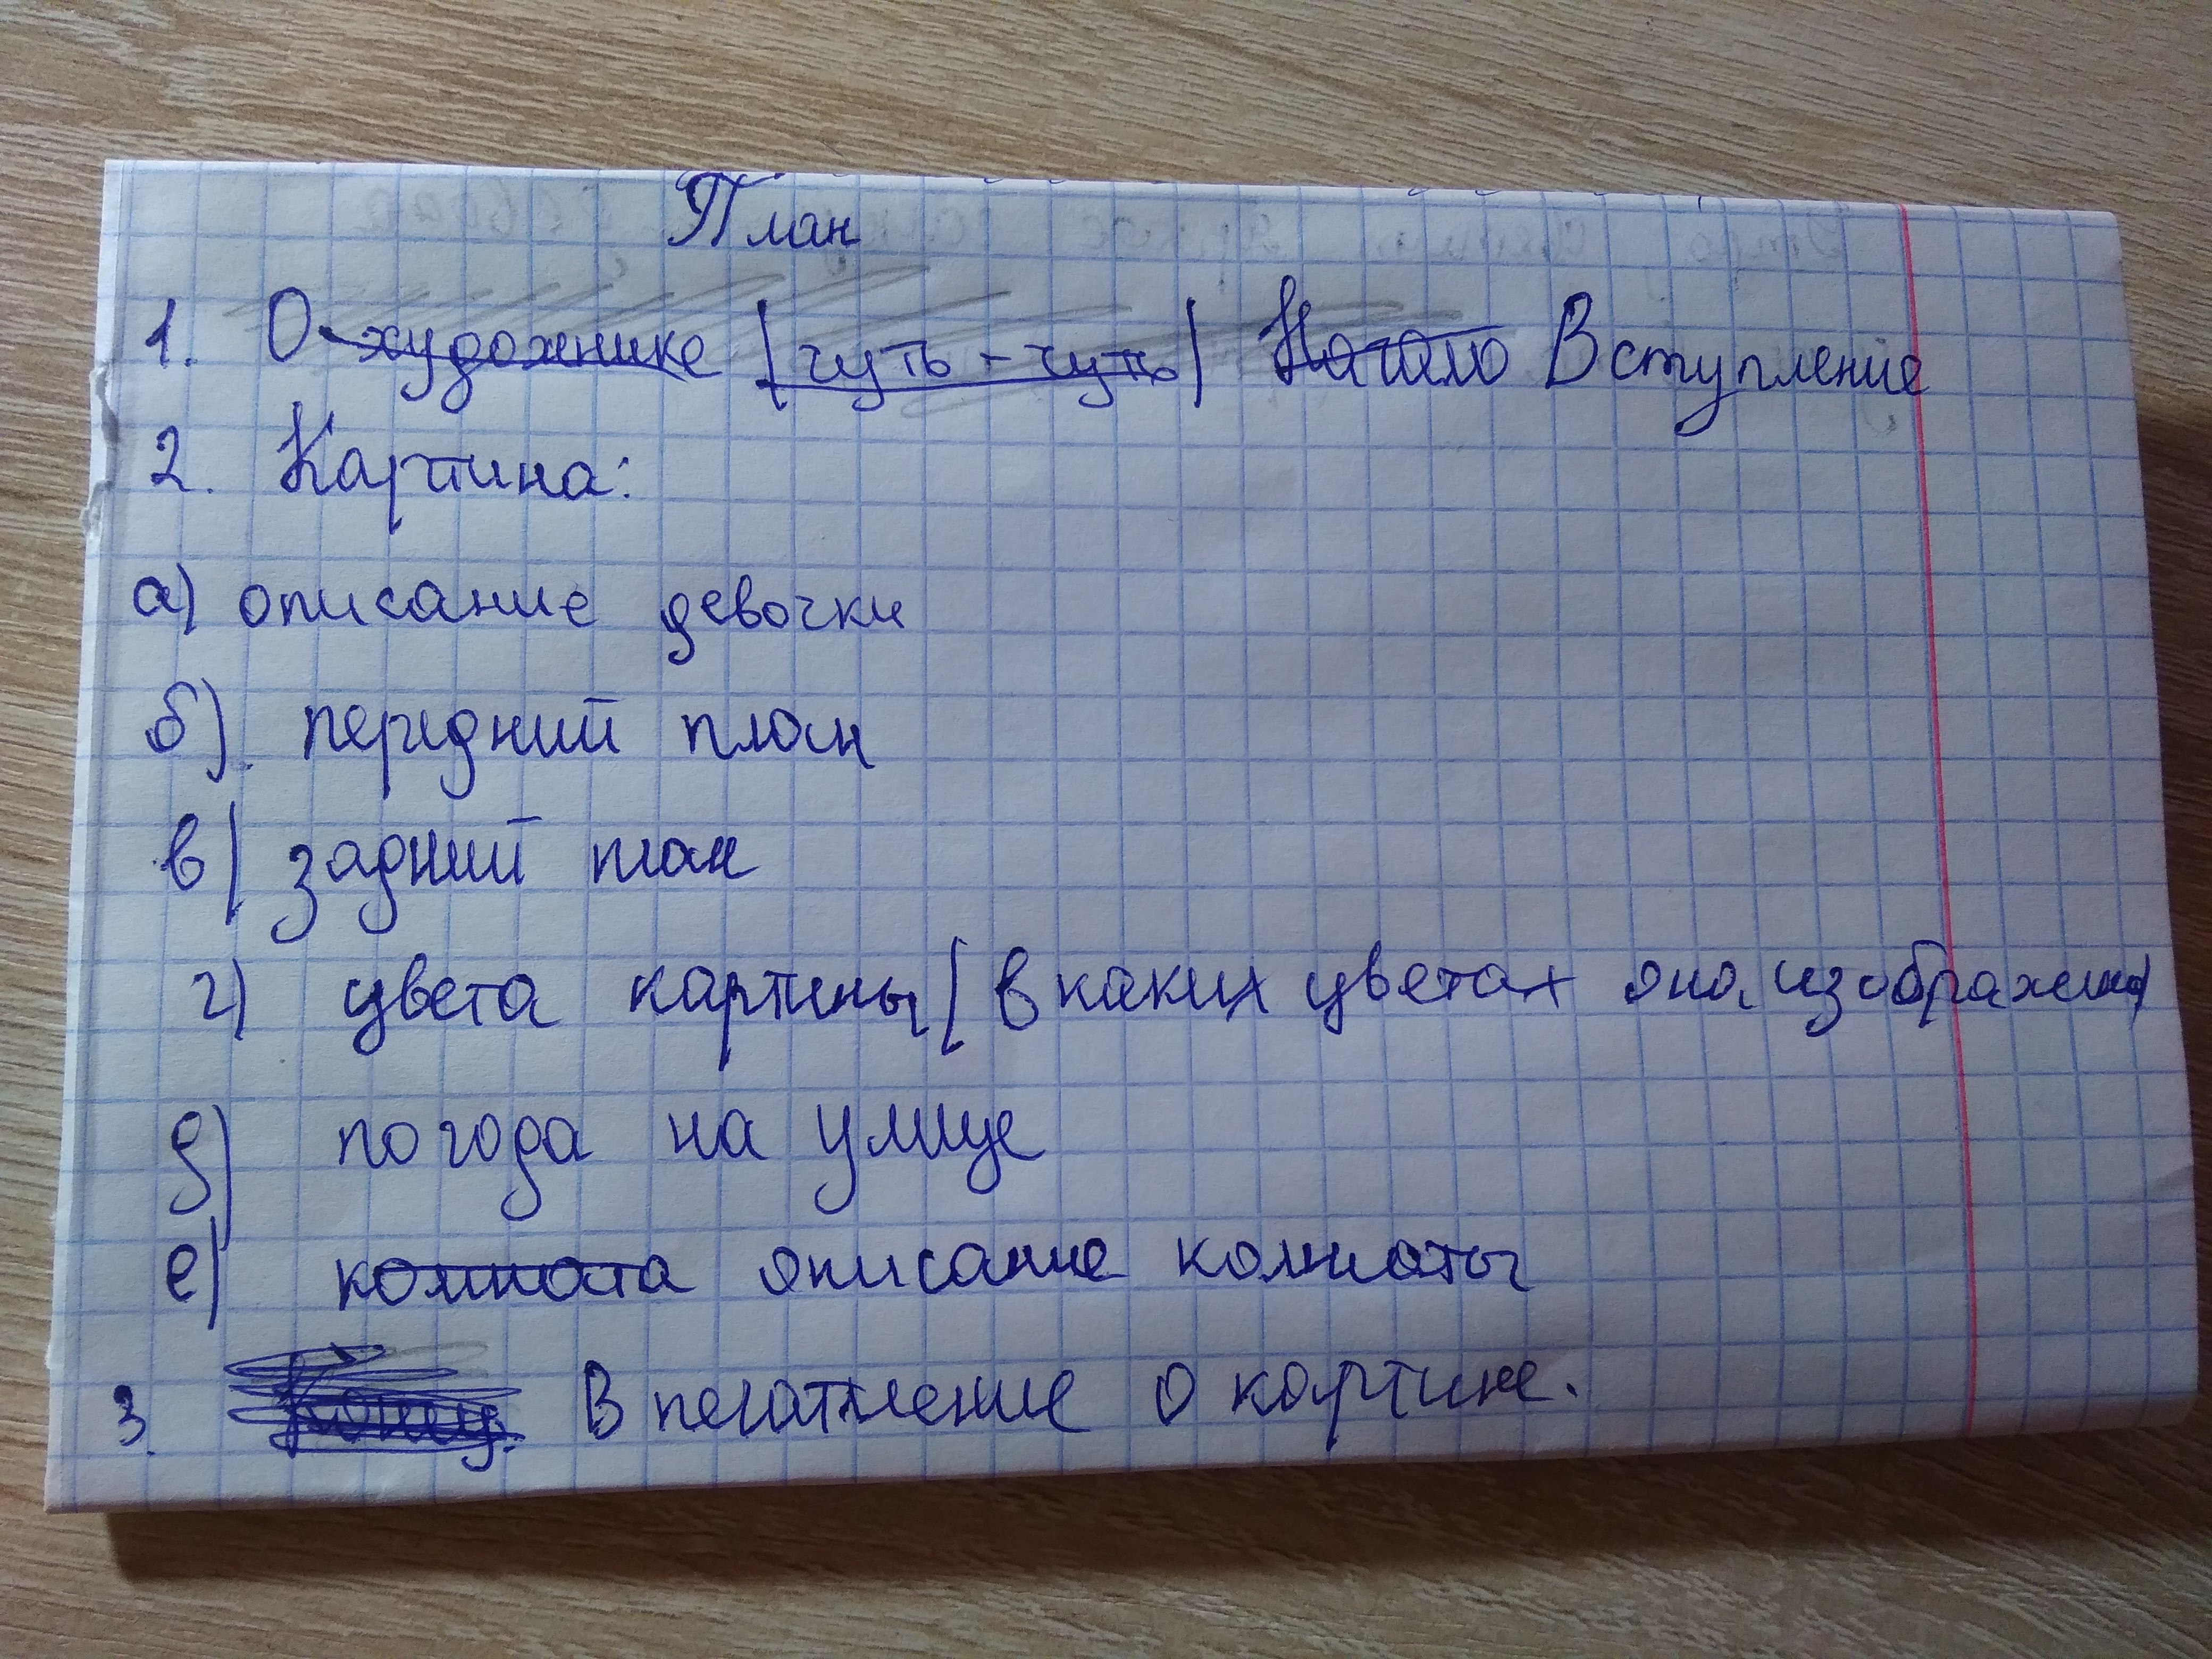 План
1. О художнике (чуть-чуть) Начало Вступление
2. Картина:
а) описание девочки
б). передний план
в) задний план
г) цвета картины (в каких цветах она изображена)
д) погода на улице
е) комната описание комнаты
3. Впечатление о картине.